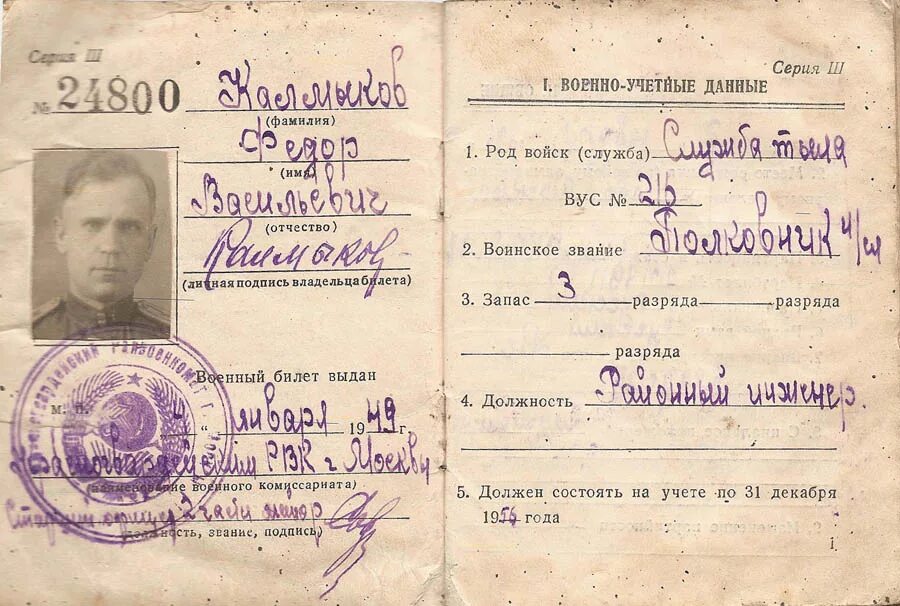 Серия III
№ 24800
Калмыков
(фамилия)
Федор
(имя)
Васильевич
(отчество)
Калмыков
(личная подпись владельца билета)
Военный билет выдан
М. П.
" января 1949 г.
РВК г Москвы
(наименование военного комиссариата)
(должность, звание, подпись)
Серия III
I. ВОЕННО-УЧЕТНЫЕ ДАННЫЕ
1. Род войск (служба) Служба тыла
ВУС №
2. Воинское звание Полковник
3. Запас 3 разряда разряда
разряда
4. Должность Районный инженер.
5. Должен состоять на учете по 31 декабря
1956 года
1